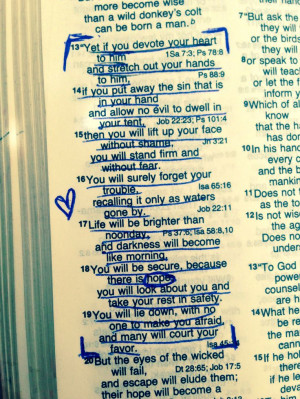 more become wise
than a wild donkey's colt
can be born a man.b
13"Yet if you devote your heart
to him 1Sa 7:3; Ps 78:8
and stretch out your hands
to him, Ps 88:9
14if you put away the sin that is
in your hand
and allow no evil to dwell in
your tent, Job 22:23; Ps 101:4
15then you will lift up your face
without shame; Jn 3:21
you will stand firm and
without fear.
16You will surely forget your
trouble, Isa 65:16
recalling it only as waters
gone by. Job 22:11
17Life will be brighter than
noonday, Ps 37:6; Isa 58:8,10
and darkness will become
like morning.
18You will be secure, because
there is hope;
you will look about you and
take your rest in safety.
19You will lie down, with no
one to make you afraid,
and many will court your
favor. Isa 45:14
20But the eyes of the wicked
will fail, Dt 28:65; Job 17:5
and escape will elude them;
their hope will become a
7"But ask the
they will
or the birds
they will
8or speak to
will teac
or let the f
inform y
9Which of al
know
that the ha
has don
10In his hand
every c
and the b
mankin
11Does not t
as the to
12Is not wis
the ag
Does no
under
13"To God
power
counsel
are h
14What he
be re
the ma
cann
15If he hol
there
if he le
deva